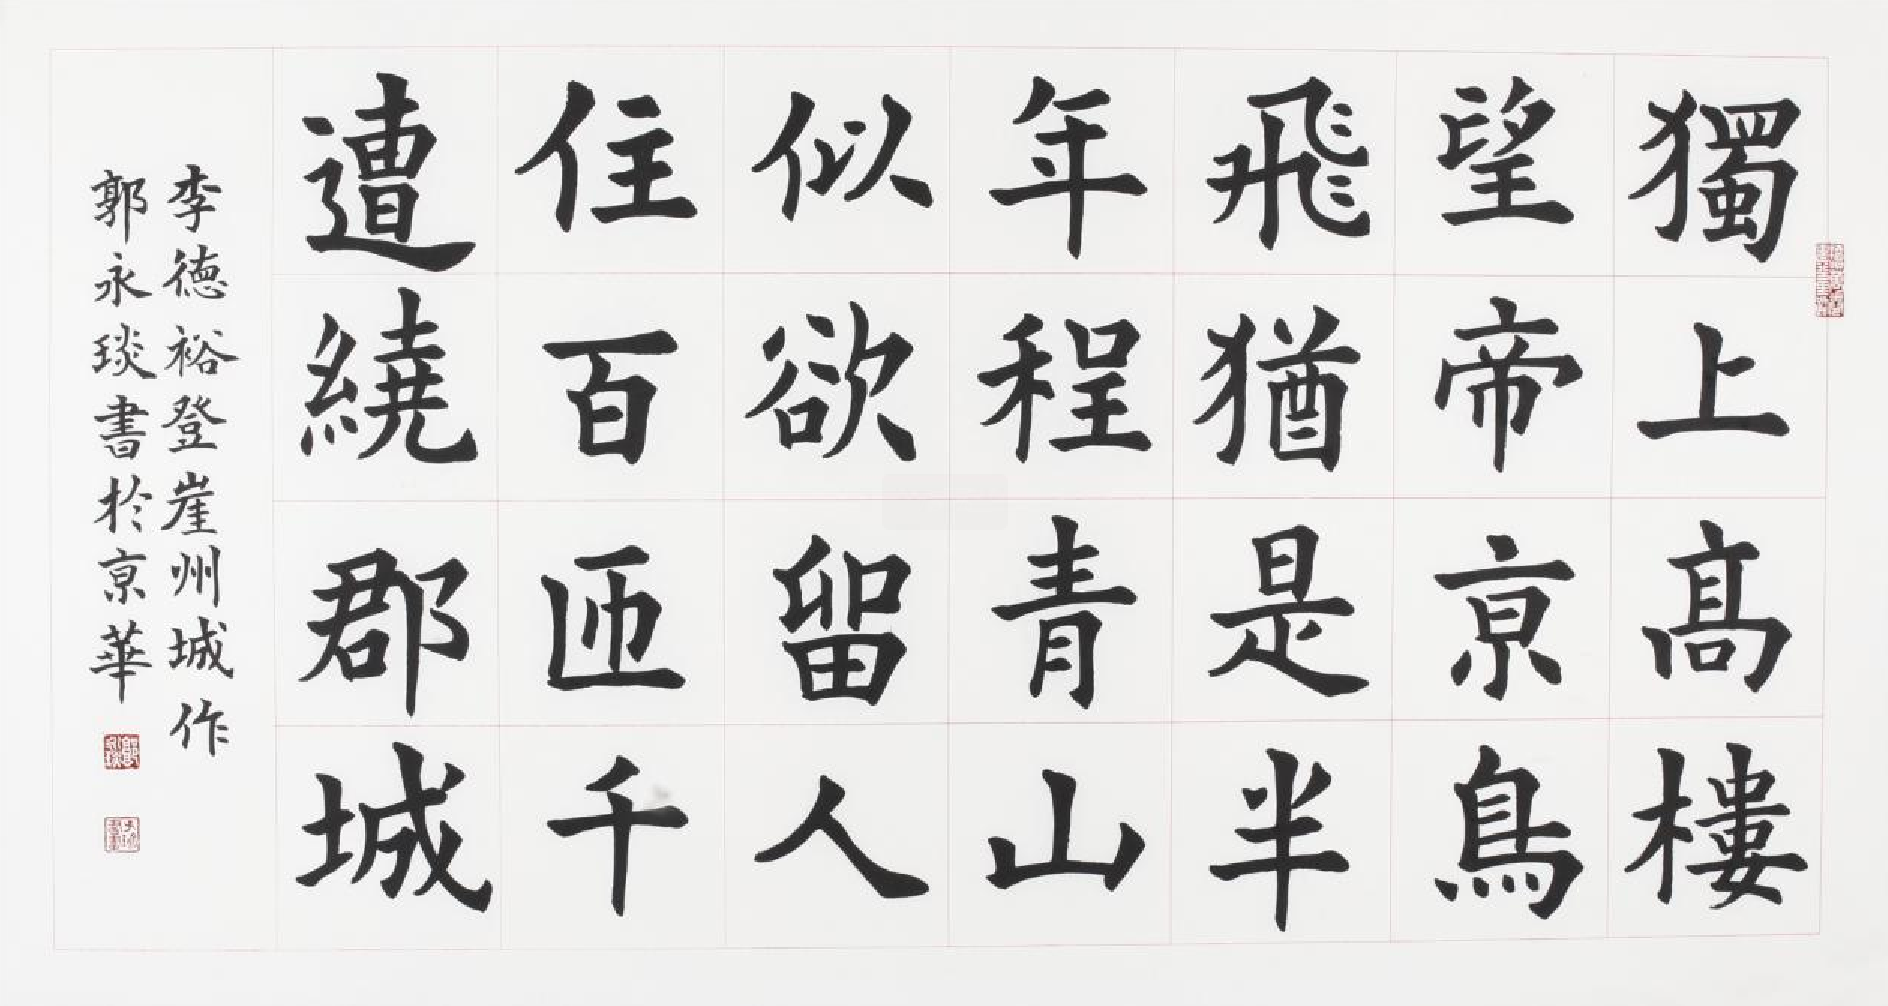 獨上高樓
望帝京鳥
飛猶是半
年程青山
似欲留人
住百匝千
遭繞郡城
李德裕登崖州城作
郭永琰書於京華